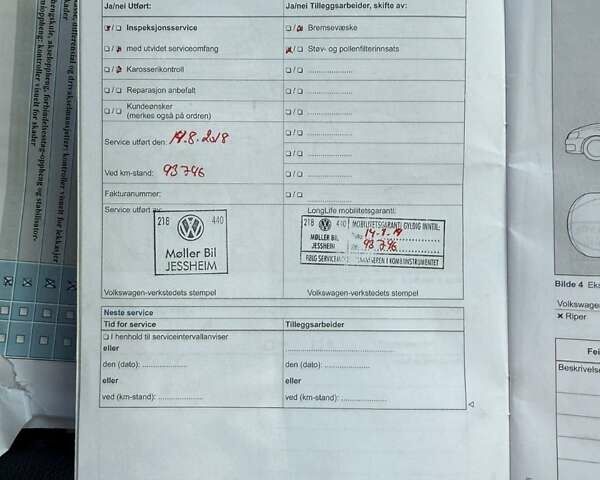 Ja/nei Utført:
Ja/nei Tilleggsarbeider, skifte av:
Inspeksjonsservice
Bremsevæske
med utvidet serviceomfang
Støv- og pollenfilterinnsats
Karosserikontroll
Reparasjon anbefalt
Kundeønsker
(merkes også på ordren)
Service utført den: 14.8.2018
Ved km-stand: 93746
Fakturanummer:
Service utført av:
LongLife mobilitetsgaranti:
218 440
Møller Bil
JESSHEIM
218 440
MØLLER BIL
JESSHEIM
MOBILITETSGARANTI GYLDIG INNTIL:
93.746
Volkswagen-verkstedets stempel
Volkswagen-verkstedets stempel
Neste service
Tid for service
Tilleggsarbeider
I henhold til serviceintervallanviser
eller
den (dato):
den (dato):
eller
eller
ved (km-stand):
ved (km-stand):
akseloppheng, forbindelsesstag-oppheng og stabilisator-
oppheng: kontroller visuelt for skader
Bilde 4
Volkswagen
× Riper
Beskrivelse